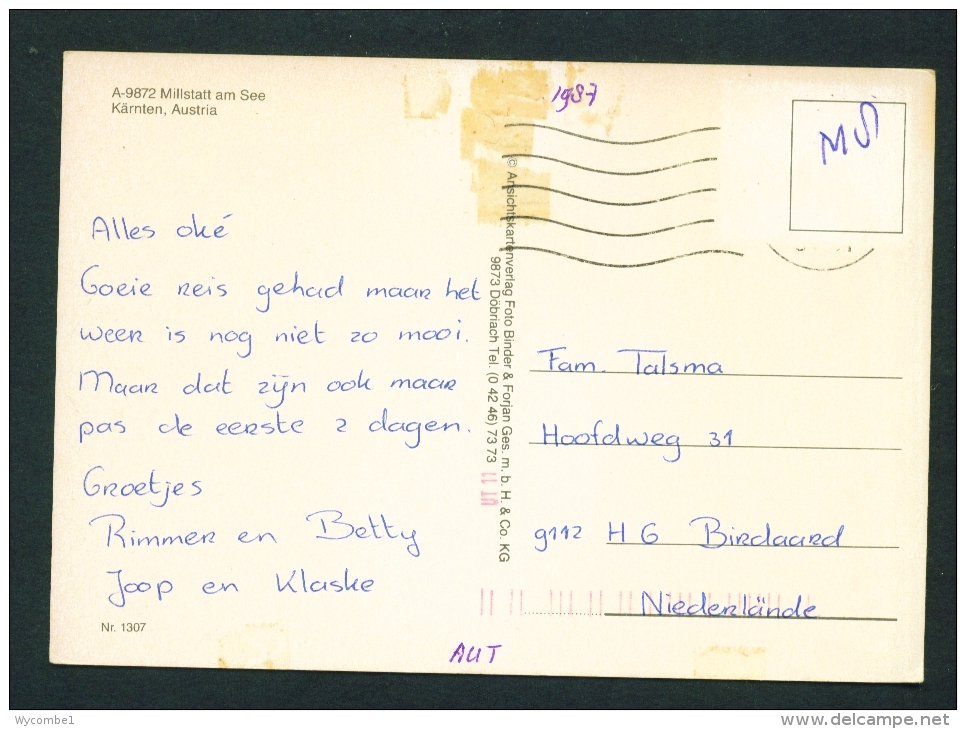 A-9872 Millstatt am See
Kärnten, Austria
1987
MS
Alles oké
Goeie reis gehad maar het
weer is nog niet zo mooi.
Maar dat zijn ook maar
pas de eerste 2 dagen.
Groetjes
Rimmer en Betty
Joop en Klaske
Nr. 1307
© Ansichtskartenverlag Foto Binder & Forjan Ges. m. b. H. & Co. KG
9873 Döbriach Tel. (0 42 46) 73 73
Fam. Talsma
Hoofdweg 31
9112 HG Birdaard
Niederlände
AUT
Wycombe1
delcampe.net